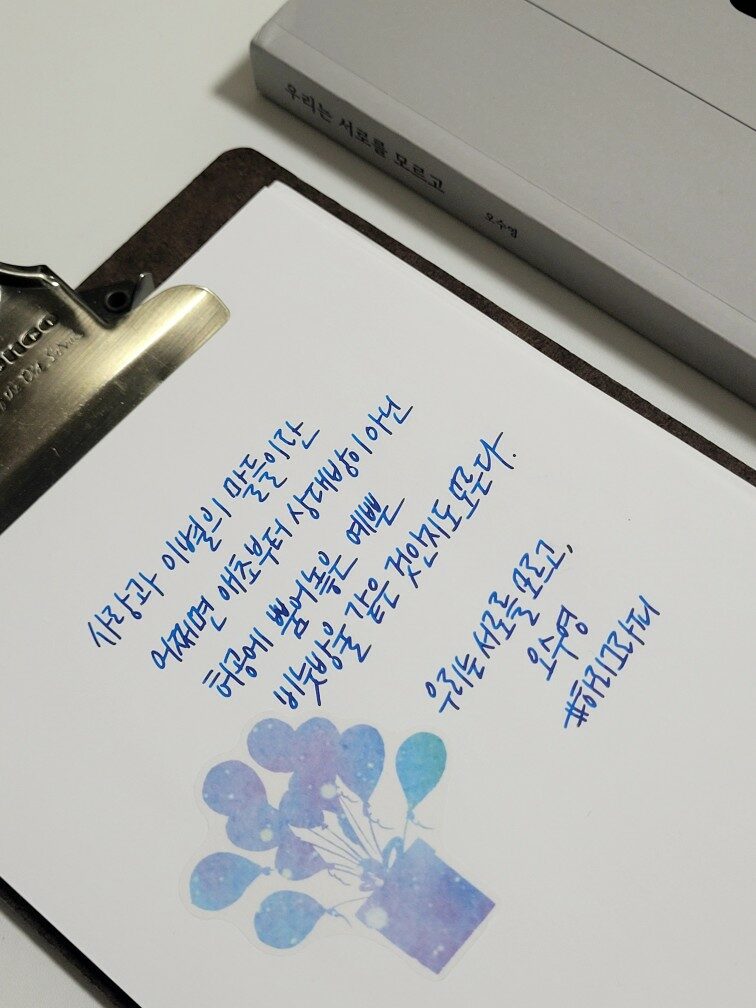 우리는 서로를 모르고
오수영
사랑과 이별의 말들이란
어쩌면 애초부터 상대방이 아닌
허공에 뿜어놓은 예쁜
비눗방울 같은 것인지도 모른다.
우리는 서로를 모르고,
오수영